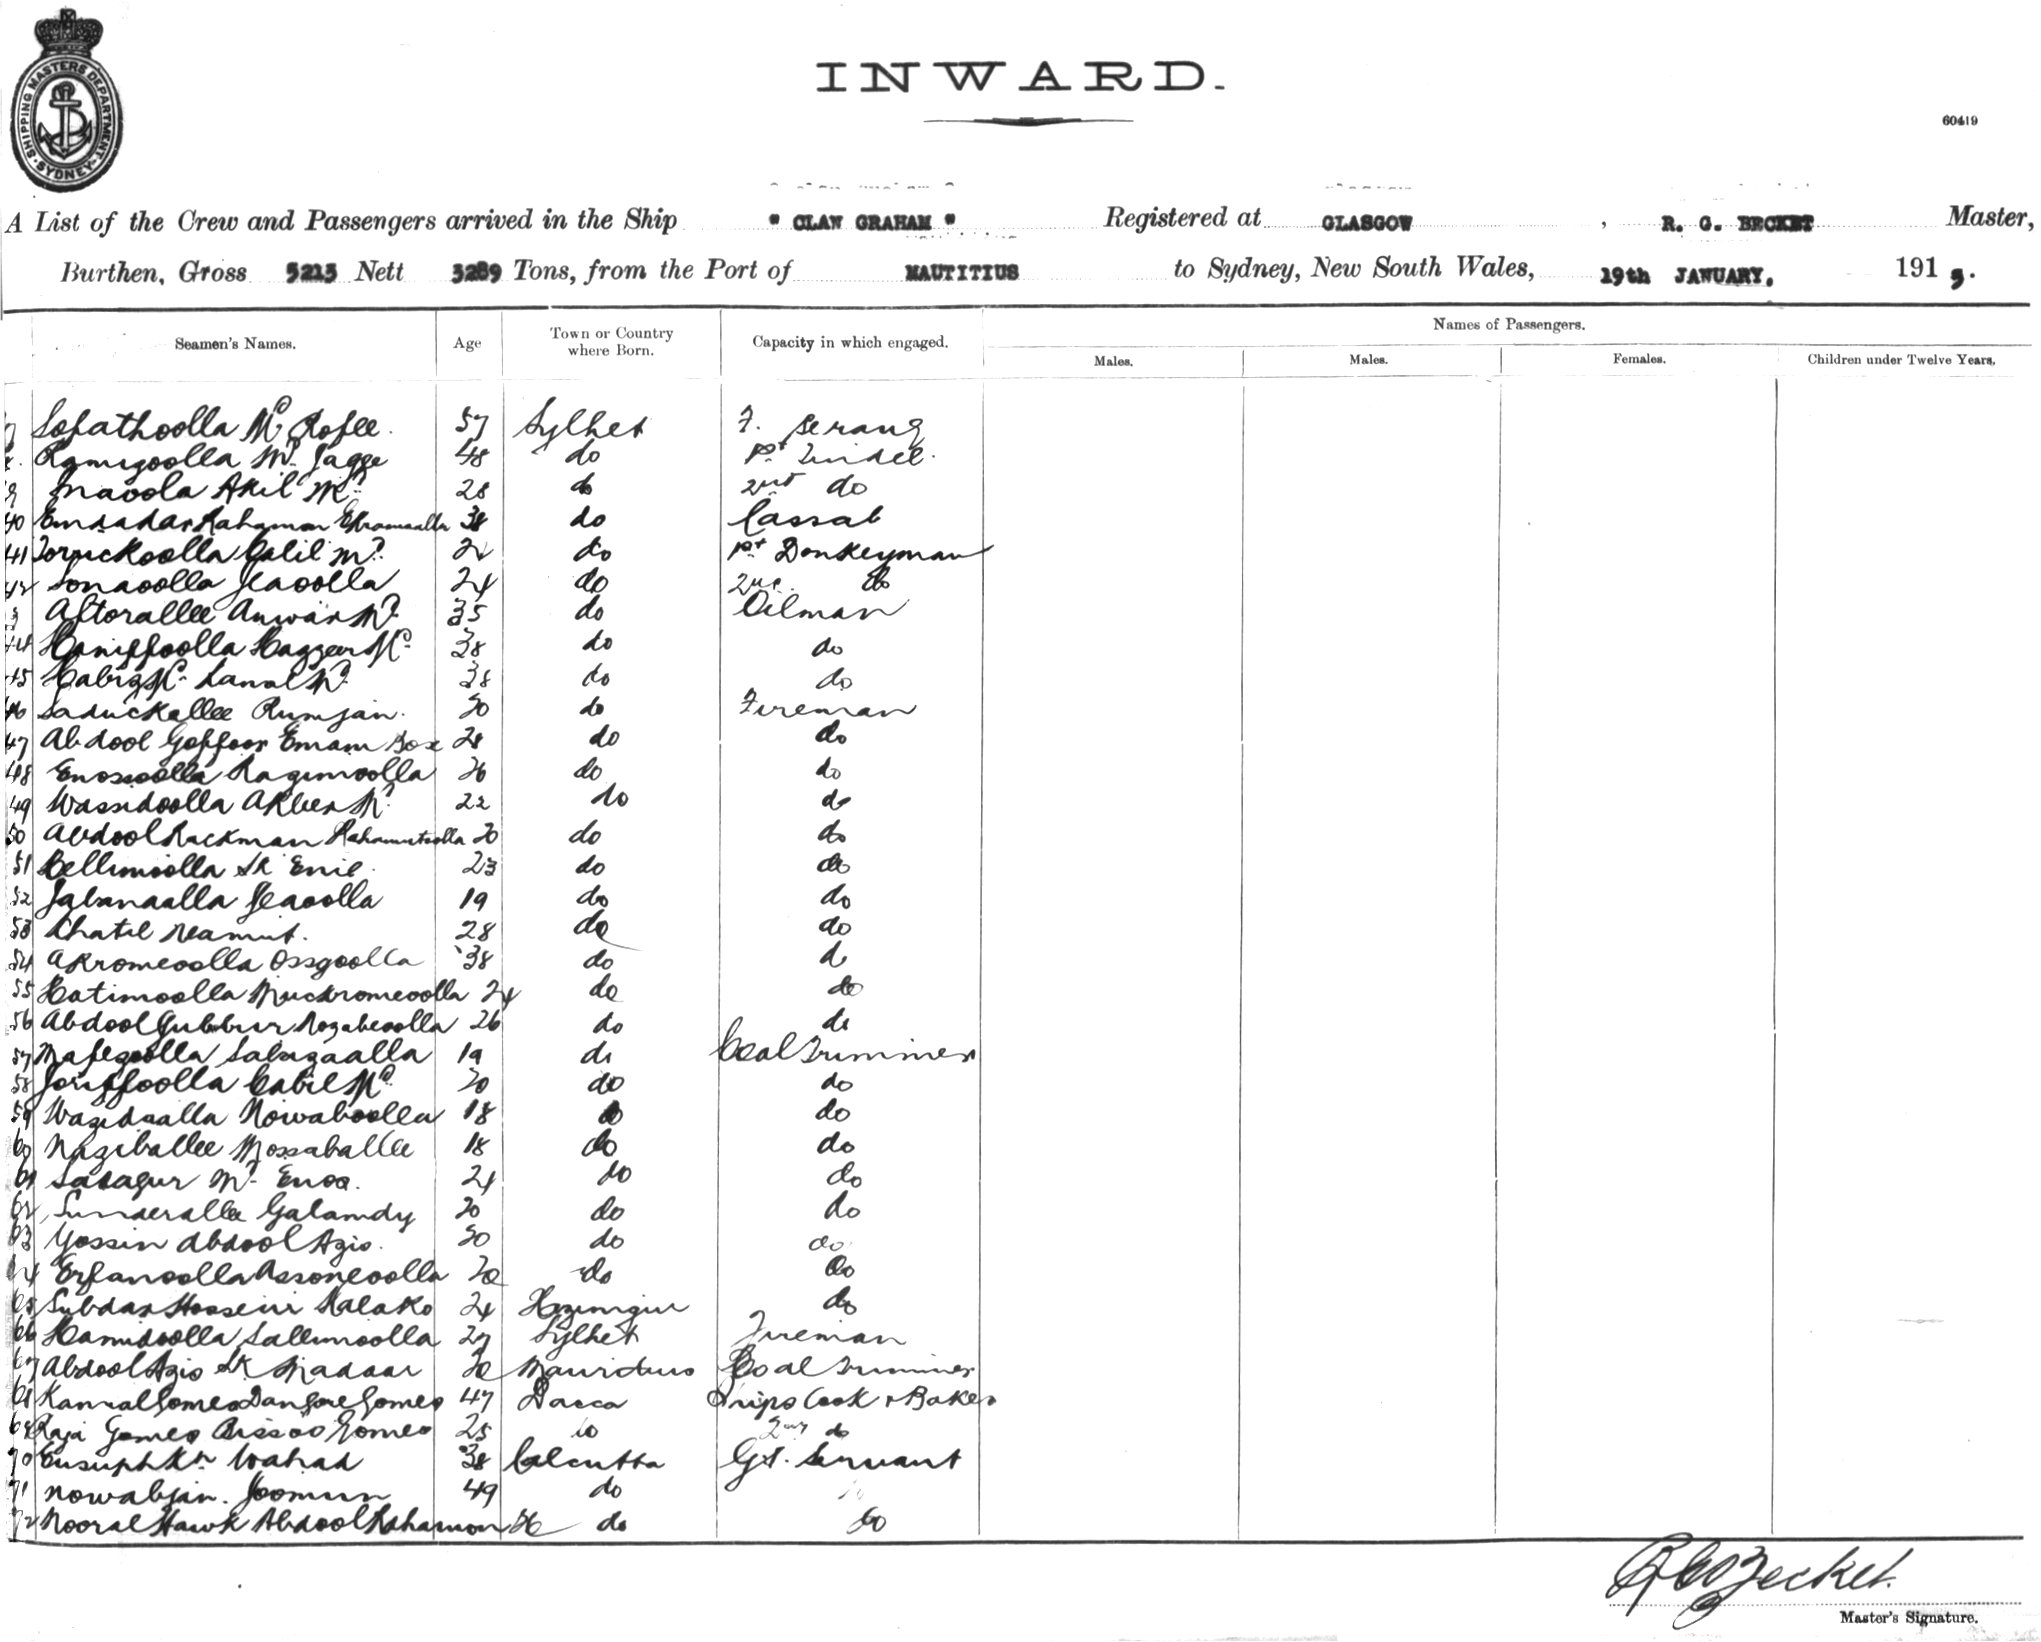 SHIPPING MASTERS DEPARTMENT
SYDNEY
INWARD.
60419
A List of the Crew and Passengers arrived in the Ship " CLAN GRAHAM " Registered at GLASGOW , R. G. BECKET Master,
Burthen, Gross 5213 Nett 3289 Tons, from the Port of MAUTITIUS to Sydney, New South Wales, 19th JANUARY, 1915.
Seamen's Names. Age Town or Country where Born. Capacity in which engaged. Names of Passengers.
Males. Males. Females. Children under Twelve Years.
Sofathoolla Md Rofee. 57 Sylhet F. Serang
Ramizoolla Md Jagge 48 do 1st Tindel.
Maoola Akil Md 28 do 2nd do
40 Emdadar Rahaman 38 do Cassab
41 Toruckoolla Calil Md do 1st Donkeyman
42 Sonaoolla Jeaoolla 24 do 2nd do
Aftorallee Anwar Md 35 do Oilman
44 Haniffoolla Md 38 do do
45 Md Md 38 do do
46 Saduckallee Rumjan. 30 do Fireman
47 Abdool Goffoor Emam Box 28 do do
48 Ragimoolla 26 do do
49 Wassidoolla Akber Md 22 do do
50 Abdool Rackman 20 do do
51 Sk 23 do do
52 Jeaoolla 19 do do
53 Chatil Neamut. 28 do do
54 Akromeoolla Ossgoolla 38 do do
55 Hatimoolla Muckromeoolla 24 do do
56 Abdool Gubbur 26 do do
57 Mafezoolla 19 do Coal Trimmer
58 Joriffoolla Cabil Md 20 do do
59 Nowaboolla 18 do do
60 Naziballee Mossaballee 18 do do
61 Sadagur Md Enos. 24 do do
62 Sunderallee Galamdy 20 do do
63 Yossin Abdool Azis. 20 do do
64 Erfanoolla Assoneoolla 20 do do
65 Subdar Hossein Kalako 24 do
66 Hamidoolla Sallimoolla 27 Sylhet Fireman
67 Abdool Azis Sk Madaar 20 Mauritius Coal Trimmer
68 Gomes Gomes 47 Dacca Ships Cook & Baker
69 Raja Gomes Gomes 25 do 2nd do
70 Wahad 38 Calcutta Gl. Servant
71 Nowabjan Joomun 49 do
72 Nooral Hawk Abdool Rahamon do do
R G Becket.
Master's Signature.